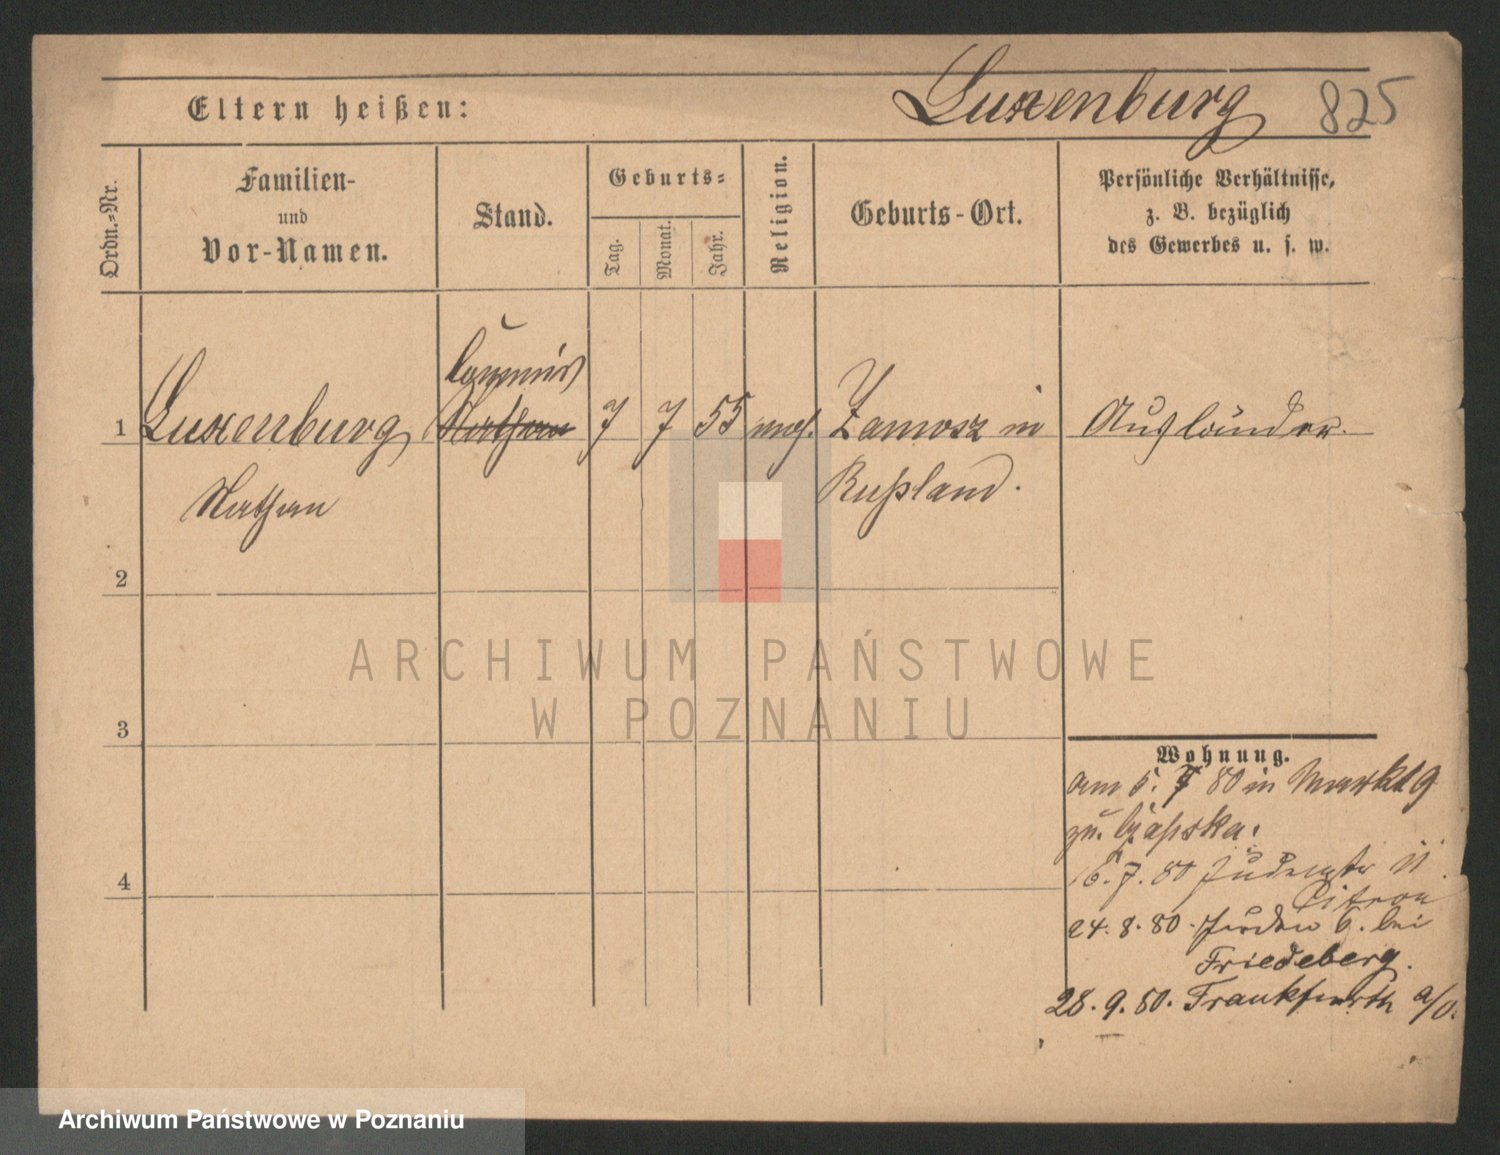 Eltern heißen:
Luxenburg 825
Ordn.-Nr.
Familien-
und
Vor-Namen.
Stand.
Geburts-
Tag.
Monat.
Jahr.
Religion.
Geburts-Ort.
Persönliche Verhältnisse,
z. B. bezüglich
des Gewerbes u. s. w.
1 Luxenburg Nathan 7 7 55 mos. Zamosz in Ausländer.
Commis
Nathan
Rußland.
2
3
4
Wohnung.
am 5. 7 80 in Markt 9
zu.
6. 7. 80 Judenstr 11
Citron
24. 8. 80. Juden 6. bei
Friedeberg.
28. 9. 80. Frankfurth a/O.
ARCHIWUM PAŃSTWOWE
W POZNANIU
Archiwum Państwowe w Poznaniu